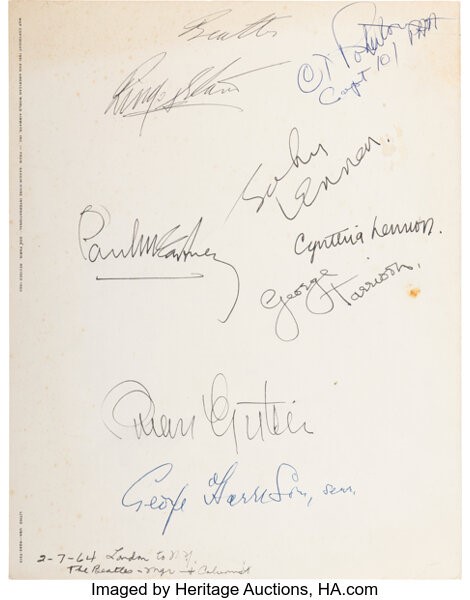 Beatles
Ringo Starr
Capt 101 PAA
John
Lennon.
Paul McCartney
Cynthia Lennon.
George
Harrison.
Brian Epstein
George Harrison, sen.
2-7-64 London to N.Y.
The Beatles - Mgr + Columnist
Imaged by Heritage Auctions, HA.com